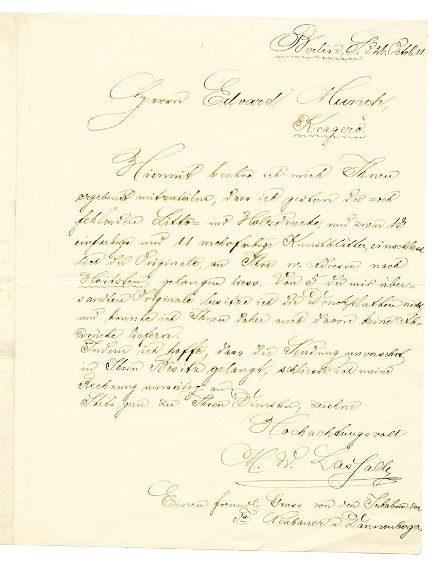 Berlin, S. d. 26. Octob. 11.
Herrn Edvard Munch,
Kragerö.
Hiermit beehre ich mich Ihnen
ergebenst mitzuteilen, dass ich gestern die noch
fehlenden Litho- und Holzdrucke, und zwar 13
einfarbige und 11 mehrfarbige Kunstblätter, einschliess-
lich die Originale, an Ihre w. Adresse nach
Hvitsten gelangen liess. Von 3 die mir über-
sandten Originale besitze ich die Druckplatten nicht
und konnte ich Ihnen daher auch davon keine Ab-
drücke liefern.
Indem ich hoffe, dass die Sendung unversehrt
in Ihren Besitz gelangt, schliesse ich meine
Rechnung an
Stets gern zu Ihren Diensten, zeichne
Hochachtungsvoll
M. W. Lassally
Einen freundl. Gruss von den Inhabern der
Fa. Neubauer u. Dannenberger